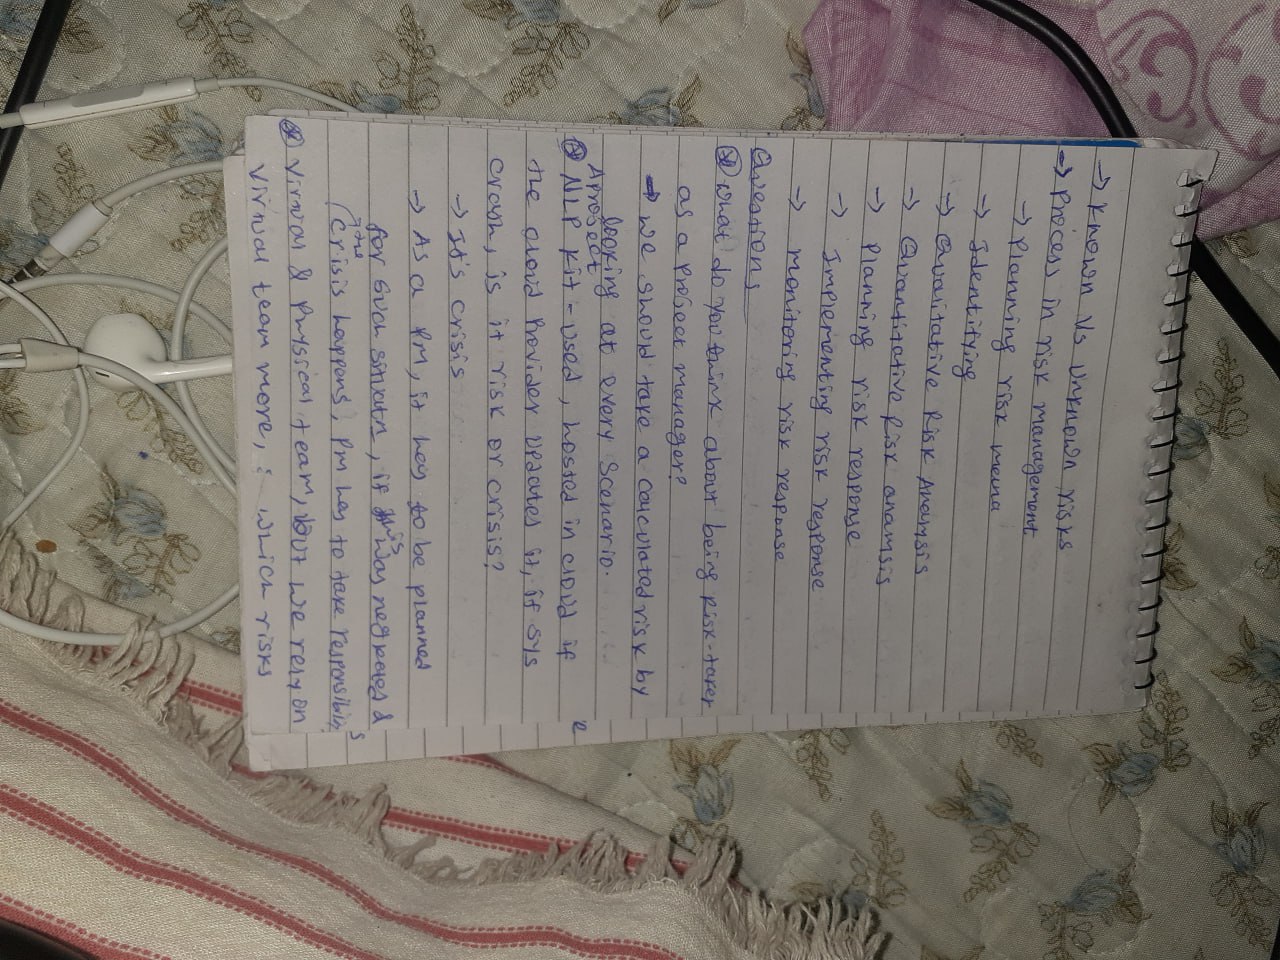 → Known Vs unknown risks
→ Process in risk management
→ Planning risk
→ Identifying
→ Qualitative Risk Analysis
→ Quantitative Risk analysis
→ Planning risk response
→ Implementing risk response
→ monitoring risk response
Questions
What do you think about being risk-taker
as a project manager?
→ we should take a calculated risk by
looking at every scenario.
A project
NLP kit - used, hosted in cloud if
the cloud Provider updates it, if sys
crash, is it risk or crisis?
→ It's crisis
→ As a PM, it has to be planned
for such situation, if this was neglected &
the
crisis happens, PM has to take
Virtual & physical team, but we rely on
Virtual team more, which risks